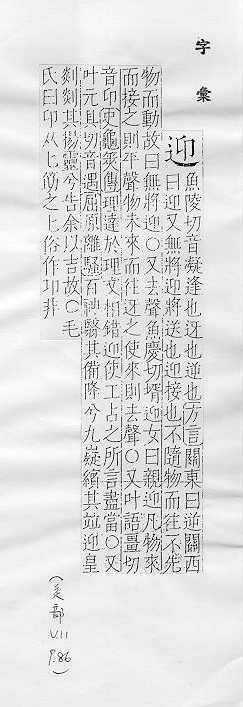 字彙
迎
魚陵切音凝逢也迓也逆也方言關東曰逆關西
曰迎又無將迎將送也迎接也不隨物而往不先
物而動故曰無將迎○又去聲魚慶切壻迎女曰親迎凡物來
而接之則平聲物未來而往迓之使來則去聲○又叶語畺切
音卬史龜筴傳理達於理文相錯迎使工占之所言盡當○又
叶元具切音遇屈原離騷百神翳其備降兮九嶷繽其竝迎皇
剡剡其揚靈兮告余以吉故○毛
氏曰卬从匕之俗作非
(辵部 V.11 P.86)